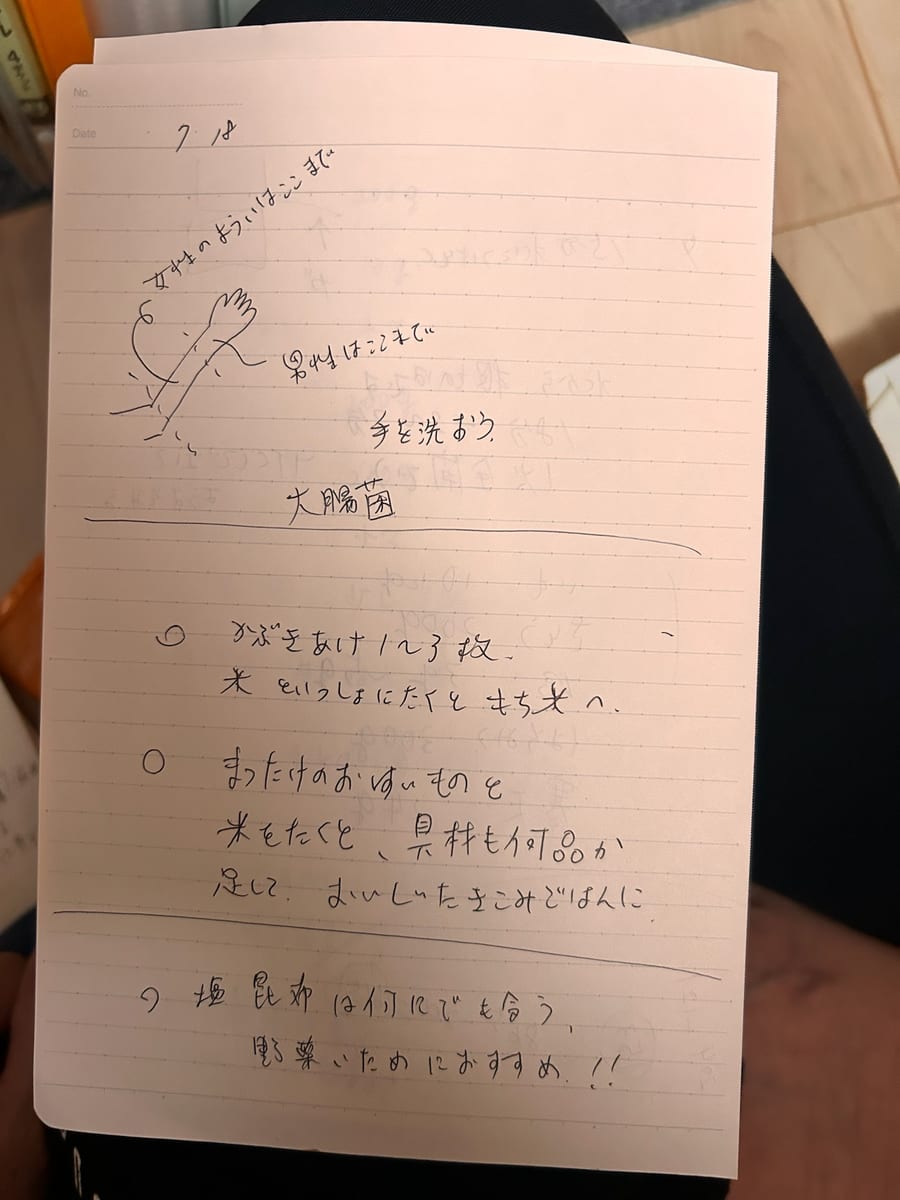 No.
Date 7・18
女性のよういはここまで
男性はここまで
手を洗おう
大腸菌
○ かぶきあげ1〜3枚、
米といっしょにたくともち米へ。
○ まつたけのおすいものと
米をたくと、具材も何品か
足して、おいしいたきこみごはんに
○ 塩昆布は何にでも合う、
野菜いためにおすすめ!!